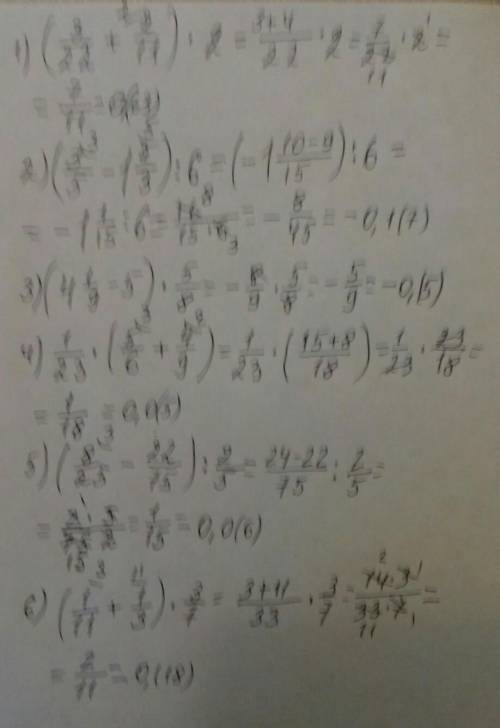 1) (3/22 + 2/11) · 2 = 3+4/22 · 2 = 7/22 · 2 =
= 7/11 =
2) ( /3 - 1 /3) : 6 = (-1 10-9/15) : 6 =
= -1 1/15 : 6 = = - 8/45 = -0,1(7)
3) (4 1/9 - 5) · 5/8 = - 8/9 · 5/8 = - 5/9 = -0,(5)
4) 1/23 · (5/6 + 4/9) = 1/23 · (15+8/18) = 1/23 · 23/18 =
= 1/18 = 0,0(5)
5) (8/25 - 22/75) : 2/5 = 24-22/75 : 2/5 =
= 2/75 · 5/2 = 1/15 = 0,0(6)
6) (1/11 + 1/3) · 3/7 = 3+11/33 · 3/7 = 14·3/33·7 =
= 2/11 = 0,(18)